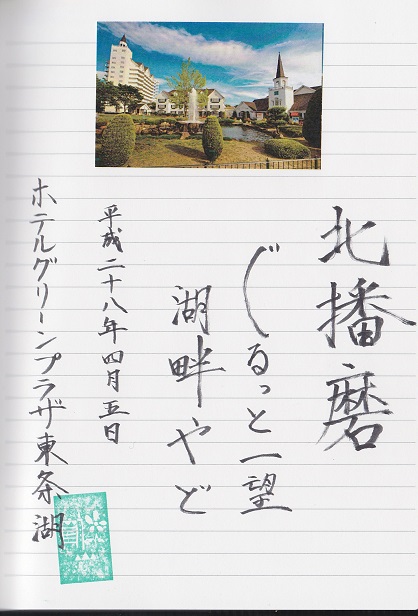 北播磨
ぐるっと一望
湖畔やど
平成二十八年四月五日
ホテルグリーンプラザ東条湖